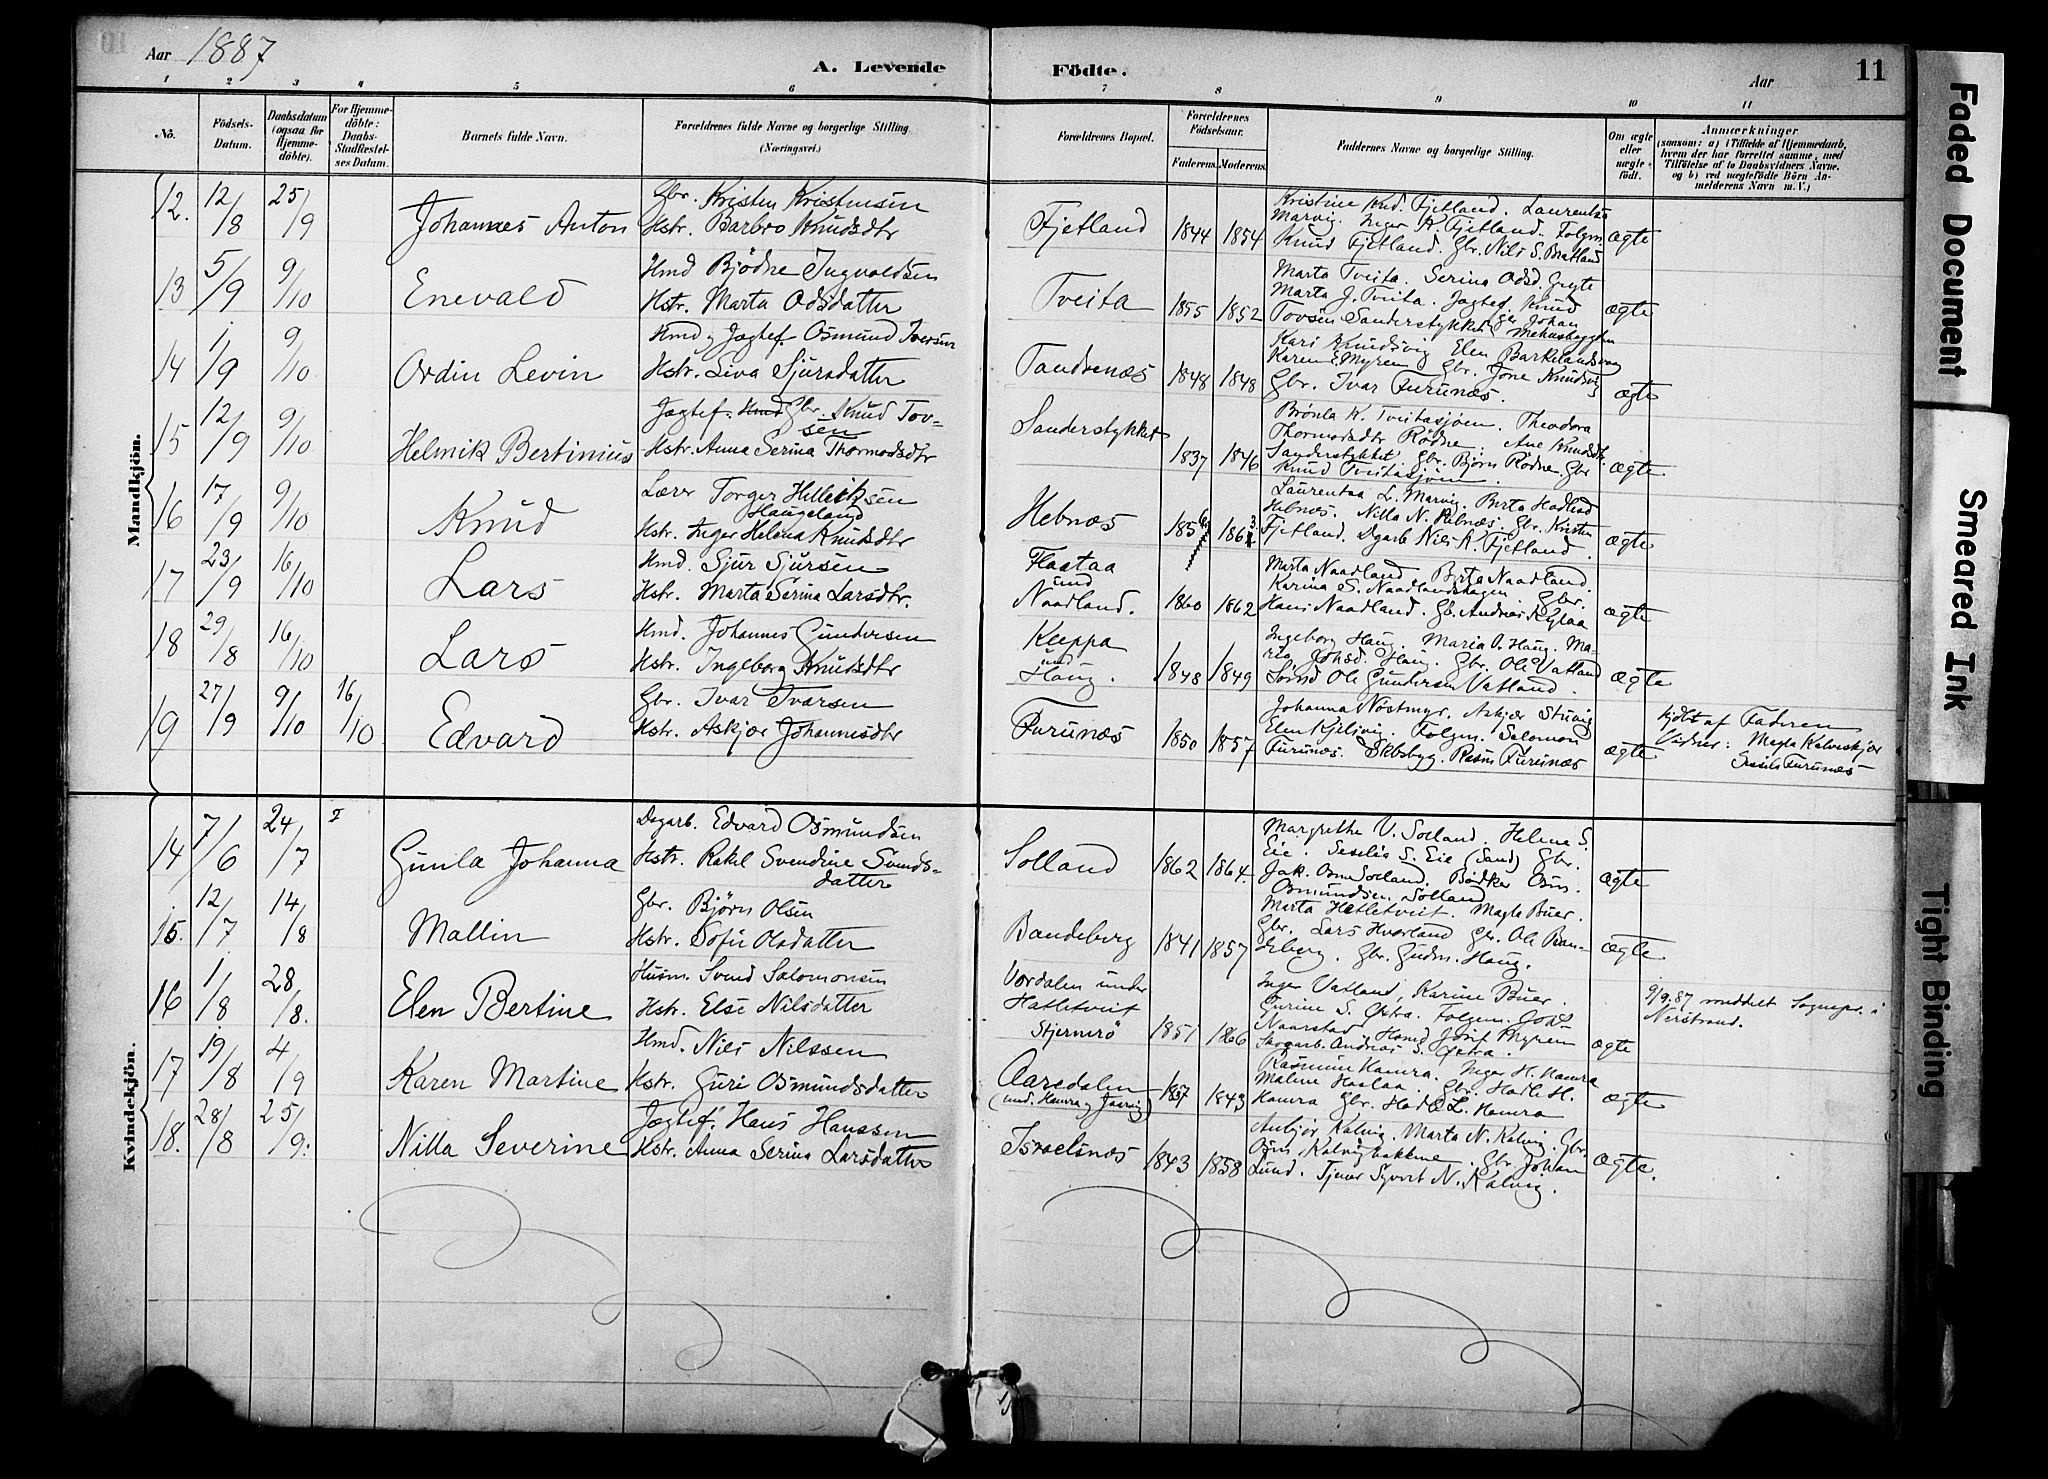 Aar 1887
A. Levende Födte.
Aar
11
1 2 3 4 5 6 7 8 9 10 11
No.
Födsels-Datum.
Daabsdatum (ogsaa for Hjemme-döbte).
For Hjemme-döbte: Daabs-Stadfæstel-ses Datum.
Barnets fulde Navn.
Forældrenes fulde Navne og borgerlige Stilling (Næringsvei.)
Forældrenes Bopæl.
Forældrenes Födselsaar.
Faderens. Moderens.
Faddernes Navne og borgerlige Stilling.
Om ægte eller uægte födt.
Anmærkninger
(saasom: a) i Tilfælde af Hjemmedaab,
hvem der har forrettet samme, med
Tilföielse af to Daabsvidners Navne.
og b) ved uægtefödte Börn An-
melderens Navn m. V.)
Mandkjön.
12. 12/8 25/9 Johannes Anton
Gbr. Kristen Kristensen
Hstr. Barbro Knudsdtr
Fjetland 1844 1854
Kristine Knd. Fjetland. Laurentse
Marvig. Inger K. Fjetland. Folgm
Knud Fjetland. Gbr. Nils S. Bratland
ægte
13 5/9 9/10 Enevald
Hmd Bjödne Ingvaldsen
Hstr. Marta Odsdatter
Tveita 1855 1852
Marta Tveita. Serina Odsd. Gryte
Marta J. Tveita. Jagtef. Knud
Tovsen Sanderstykket Gbr Johan
ægte
14 1/9 9/10 Ordin Levin
Hmd og Jagtef. Osmund Iversen
Hstr. Liva Sjursdatter
Tandrenæs 1848 1848
Kari Knudsvig Elen Barkelandsvaag
Karen E. Myren. Gbr. Jone Knudsvig
Gbr. Ivar Furunæs.
ægte
15 12/9 9/10 Helmik Bertinius
Jagtef. Hmd Gbr. Knud Tov-
sen
Hstr. Anna Serina Thormodsdtr
Sanderstykket 1837 1846
Brönla K. Tveitasjoen. Theodora
Thormodsdtr Rödne. Ane Knudsdtr
Sanderstykket Gbr. Björn Rödne. Gbr
Knud Tveitasjöen.
ægte
16 17/9 9/10 Knud
Lærer Torger Helliksen
Haugeland
Hstr. Inger Helena Knudsdtr
Hebnæs 1856 1863
Laurentsa L. Marvig. Berta Hadled
Hebnæs. Nilla N. Hebnæs. Gbr. Kristen
Fjetland. Dgarb Nils K. Fjetland.
ægte
17 23/9 16/10 Lars
Hmd. Sjur Sjursen
Hstr. Marta Serina Larsdtr.
Flaataa
und
Naadland. 1860 1862
Marta Naadland Berta Naadland
Karina S. Naadlandshagen Gbr.
Hans Naadland. Gb. Andreas Kyraa
ægte
18 29/8 16/10 Lars
Hmd. Johannes Gundersen
Hstr. Ingeborg Knudsdtr
Kleppa
und
Haug. 1848 1849
Ingeborg Haug. Maria O. Haug. Ma-
ria Johsd. Haug. Gbr. Ole Vatland
Sömd Ole Gundersen Vatland.
ægte
19 27/9 9/10 16/10 Edvard
Gbr. Ivar Ivarsen
Hstr. Askjær Johannesdtr
Furunæs 1850 1857
Johanna Nöstmyr. Askjær Struvig
Elen Kjilevig. Folgm. Salomon
Furunæs. Skbsbyg. Rasm Furunæs
ægte
hjdbt af Faderen
Vidner: Magla Kalveskjær
Sissela Furunæs
Kvindekjön.
14 7/6 24/7 Gunla Johanna
Dagarb. Edvard Osmundsen
Hstr. Rakel Svendine Svends-
datter
Solland 1862 1864.
Margrethe V. Solland. Helene S.
Eie. Seselia S. Eie (Sand) Gbr.
Jak. Osm Solland. Bödker Osm.
Osmundsen Solland
ægte
15. 12/7 14/8 Mallin
Gbr. Björn Olsen
Hstr. Sofie Olsdatter
Bandeberg 1841 1857
Marta Hetletveit. Magla Buer.
Gbr. Lars Hvorland Gbr. Ole Ban-
deberg. Gbr. Gudm. Haug.
ægte
16 1/8 28/8. Elen Bertine
Husm. Svend Salomonsen
Hstr. Else Nilsdatter
Vordalen under
Hatletveit
Stjernerö 1851 1866
Inger Vatland, Karine Buer.
Gurine S. Östra. Folgem. Jone
Naarstad Hmd Josef Myren
Skogarb. Andreas S. Östra.
ægte
9/9.87 meddelt Sognepr. i
Nerstrand.
17 19/8 4/9 Karen Martine
Hmd. Nils Nilssen
Hstr. Guri Osmundsdatter
Aaredalen
(und. Hamra og Jaavig) 1867 1843
Rasmine Hamra. Inger H. Hamra
Maline Haslaa. Gbr. Hadle H.
Hamra Gbr. Hadle L. Hamra
ægte
18. 28/8 25/9. Nilla Severine
Jagtef. Hans Hanssen
Hstr. Anna Serina Larsdatter
Israelsnæs 1843 1858
Anbjör Kalvig. Marta N. Kalvig. Gbr.
Osm. Kalvigbakkene. Gbr Johan
Lund. Tjener Syvert N. Kalvig.
ægte.
Faded Document
Smeared Ink
Tight Binding